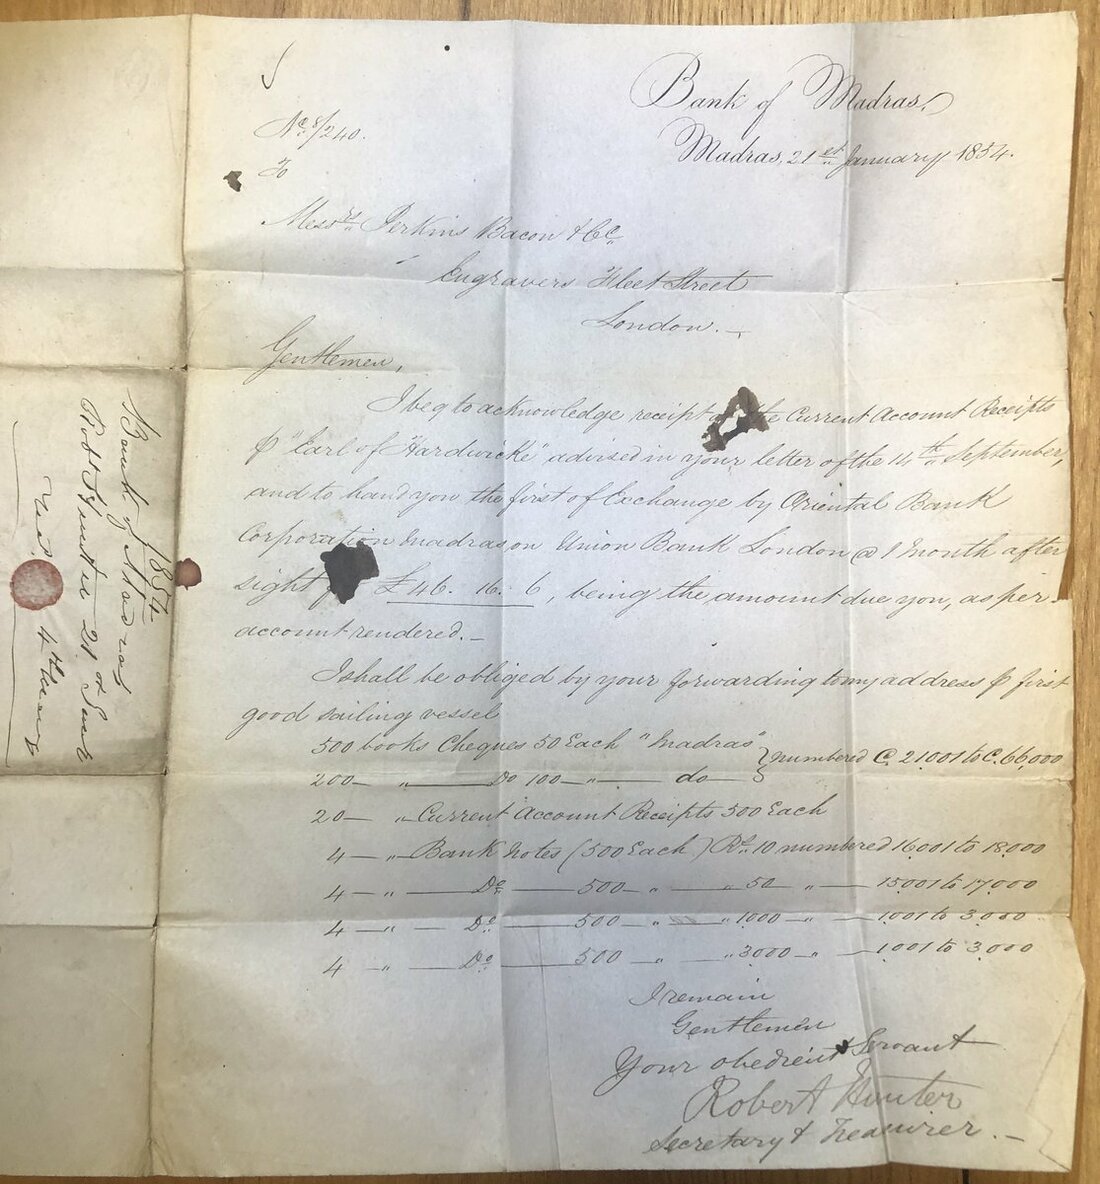 Bank of Madras,
Madras, 21st January 1854.
No. 8/240.
To
Messrs Perkins Bacon & Co
Engravers Fleet Street
London.
Gentlemen,
I beg to acknowledge receipt the Current Account Receipts
⅌ "Earl of Hardwicke" advised in your letter of the 14th September,
and to hand you the first of Exchange by Oriental Bank
Corporation Madras on Union Bank London @ 1 month after
sight £46. 16. 6, being the amount due you, as per
account rendered.
I shall be obliged by your forwarding to my address ⅌ first
good sailing vessel
500 books Cheques 50 Each "Madras" } numbered C. 21001 to C. 66,000
200 — " — Do 100 — " — do }
20 — " Current Account Receipts 500 Each
4 — " — Bank notes (500 Each) Rs. 10 numbered 16001 to 18,000
4 — " — Do — 500 — " — " 50 " — 15001 to 17,000
4 — " — Do — 500 — " — " 1000 — " — 1001 to 3,000
4 — " — Do — 500 — " — " 3000 — " — 1001 to 3,000
I remain
Gentlemen
Your obedient Servant
Robert Hunter
Secretary & Treasurer.
1854
Bank of Madras
Robt Hunter 21
4th